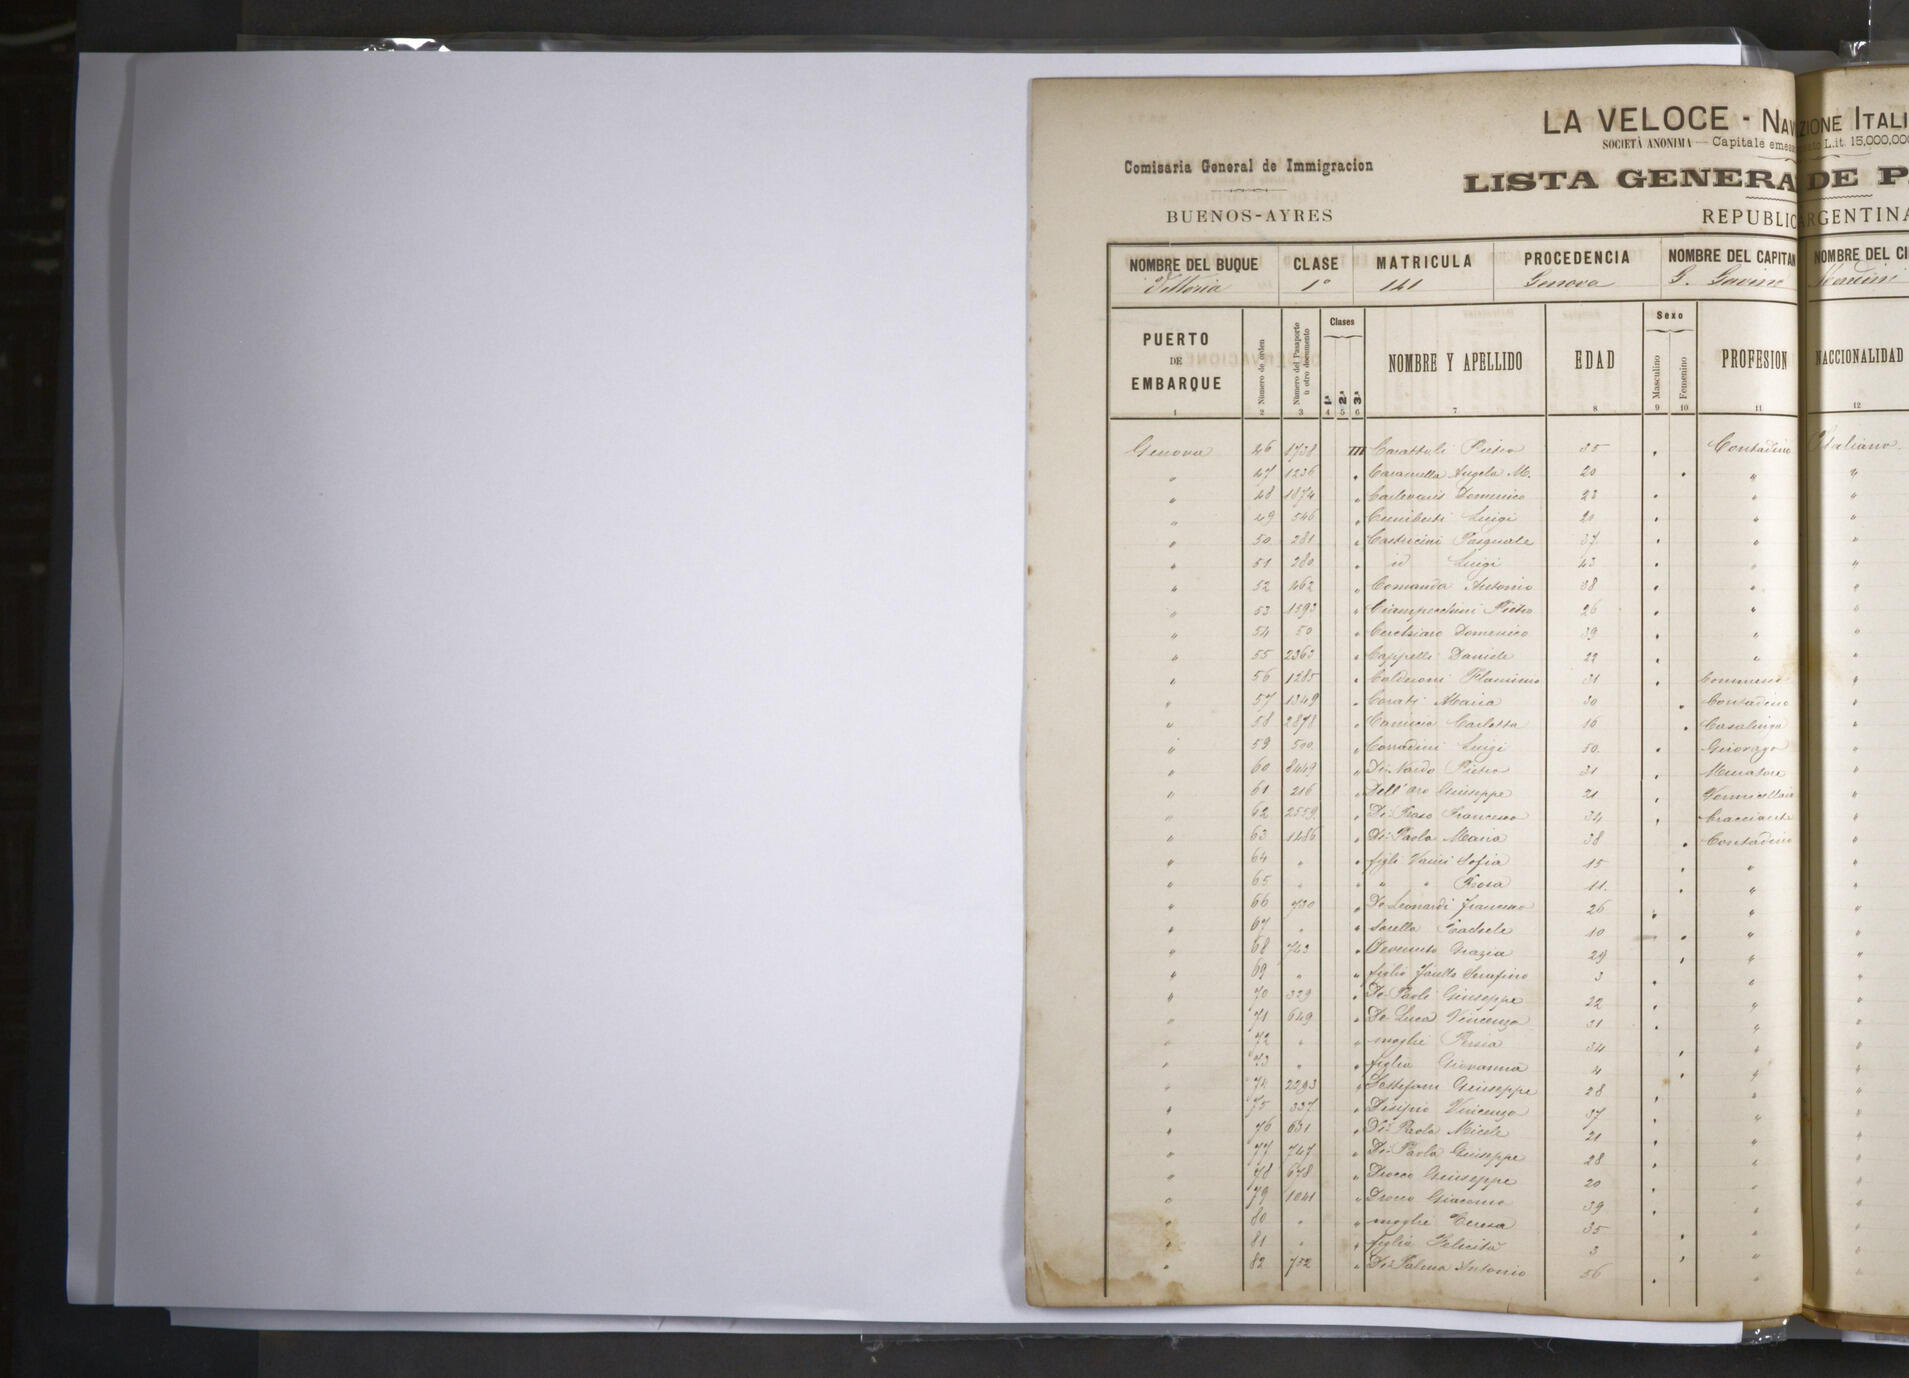 LA VELOCE - NAV ZIONE ITALI
SOCIETÀ ANONIMA — Capitale emes ato L.it. 15,000,00
Comisaria General de Immigracion
LISTA GENERA DE P
BUENOS-AYRES
REPUBLIC ARGENTINA
NOMBRE DEL BUQUE CLASE MATRICULA PROCEDENCIA NOMBRE DEL CAPITAN NOMBRE DEL CI
Vittoria 1ª 141 Genova G. Gavino
PUERTO DE EMBARQUE Número de orden Número del Pasaporte ú otro documento Clases 1ª 2ª 3ª NOMBRE Y APELLIDO EDAD Sexo Masculino Femenino PROFESION NACCIONALIDAD
1 2 3 4 5 6 7 8 9 10 11 12
Genova 46 1738 III Carattuli Pietro 35 " Contadino Italiano
" 47 1236 " Caranella Angela M. 20 " " "
" 48 1874 " Carlevaris Domenico 23 " " "
" 49 546 " Cuniberti Luigi 20 " " "
" 50 281 " Castricini Pasquale 37 " " "
" 51 280 " id Luigi 43 " " "
" 52 462 " Comanda Antonio 38 " " "
" 53 1593 " Ciampecchini Pietro 26 " " "
" 54 50 " Cerchiaro Domenico 39 " " "
" 55 2363 " Cappelli Daniele 22 " " "
" 56 1285 " Calderoni Flaminio 31 " "
" 57 1349 " Corati Maria 30 " Contadino "
" 58 2878 " Camicia Carlotta 16 " Casalinga "
" 59 500 " Corradini Luigi 50 " Girovago "
" 60 8449 " Di Nardo Pietro 31 " Minatore "
" 61 216 " Dell'Oro Giuseppe 21 " Vermicellaio "
" 62 2559 " Francesco 34 " Bracciante "
" 63 1486 " Di Paola Maria 38 " Contadino "
" 64 " " figli Vairi Sofia 15 " " "
" 65 " " " " Rosa 11 " " "
" 66 730 " De Leonardi Francesco 26 " " "
" 67 " " sorella Rachele 10 " " "
" 68 743 " Benvenuto Grazia 29 " " "
" 69 " " figlio Jaiello Serafino 3 " " "
" 70 329 " De Paoli Giuseppe 22 " " "
" 71 649 " De Luca Vincenzo 31 " " "
" 72 " " moglie Persia 34 " " "
" 73 " " figlia Giovanna 4 " " "
" 74 2293 " Destefani Giuseppe 28 " " "
" 75 337 " Disipio Vincenzo 37 " " "
" 76 631 " Di Paola Micele 21 " " "
" 77 747 " Di Paola Giuseppe 28 " " "
" 78 678 " Drocco Giuseppe 20 " " "
" 79 1041 " Drocco Giacomo 39 " " "
" 80 " " moglie Teresa 35 " " "
" 81 " " figlia Felicita 3 " " "
" 82 752 " Di Palma Antonio 56 " " "